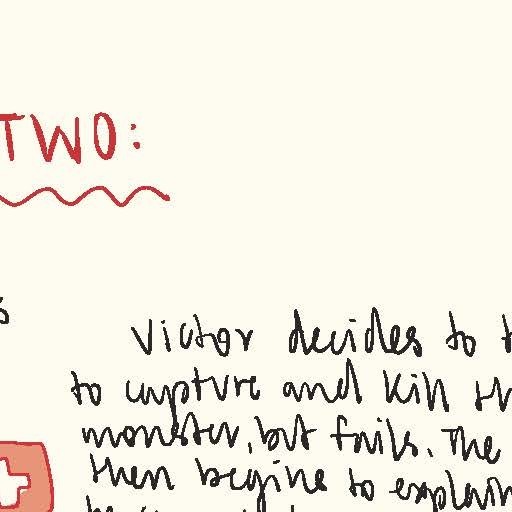 TWO:
Victor decides to
to capture and kill
monster, but fails. The
then begins to explain